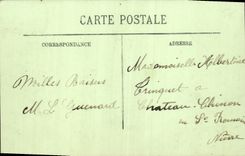 CARTE POSTALE
CORRESPONDANCE
ADRESSE
Milles Baisers
M. L. Guenard
Mademoiselle Albertine
Tringuet a
Château-Chinon
Nièvre